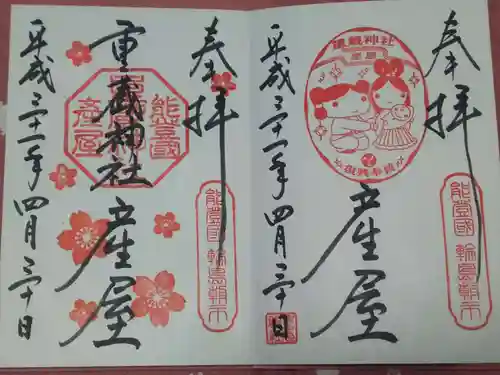 奉拝
重蔵神社
産屋
平成三十一年四月三十日
能登國
産屋
能登國 輪島朝市
奉拝
産屋
平成三十一年四月三十日
重蔵神社
産屋
能登國 輪島朝市